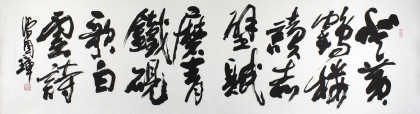 登黄
鶴樓
讀赤
壁賦
磨青
鐵硯
歌白
雪詩